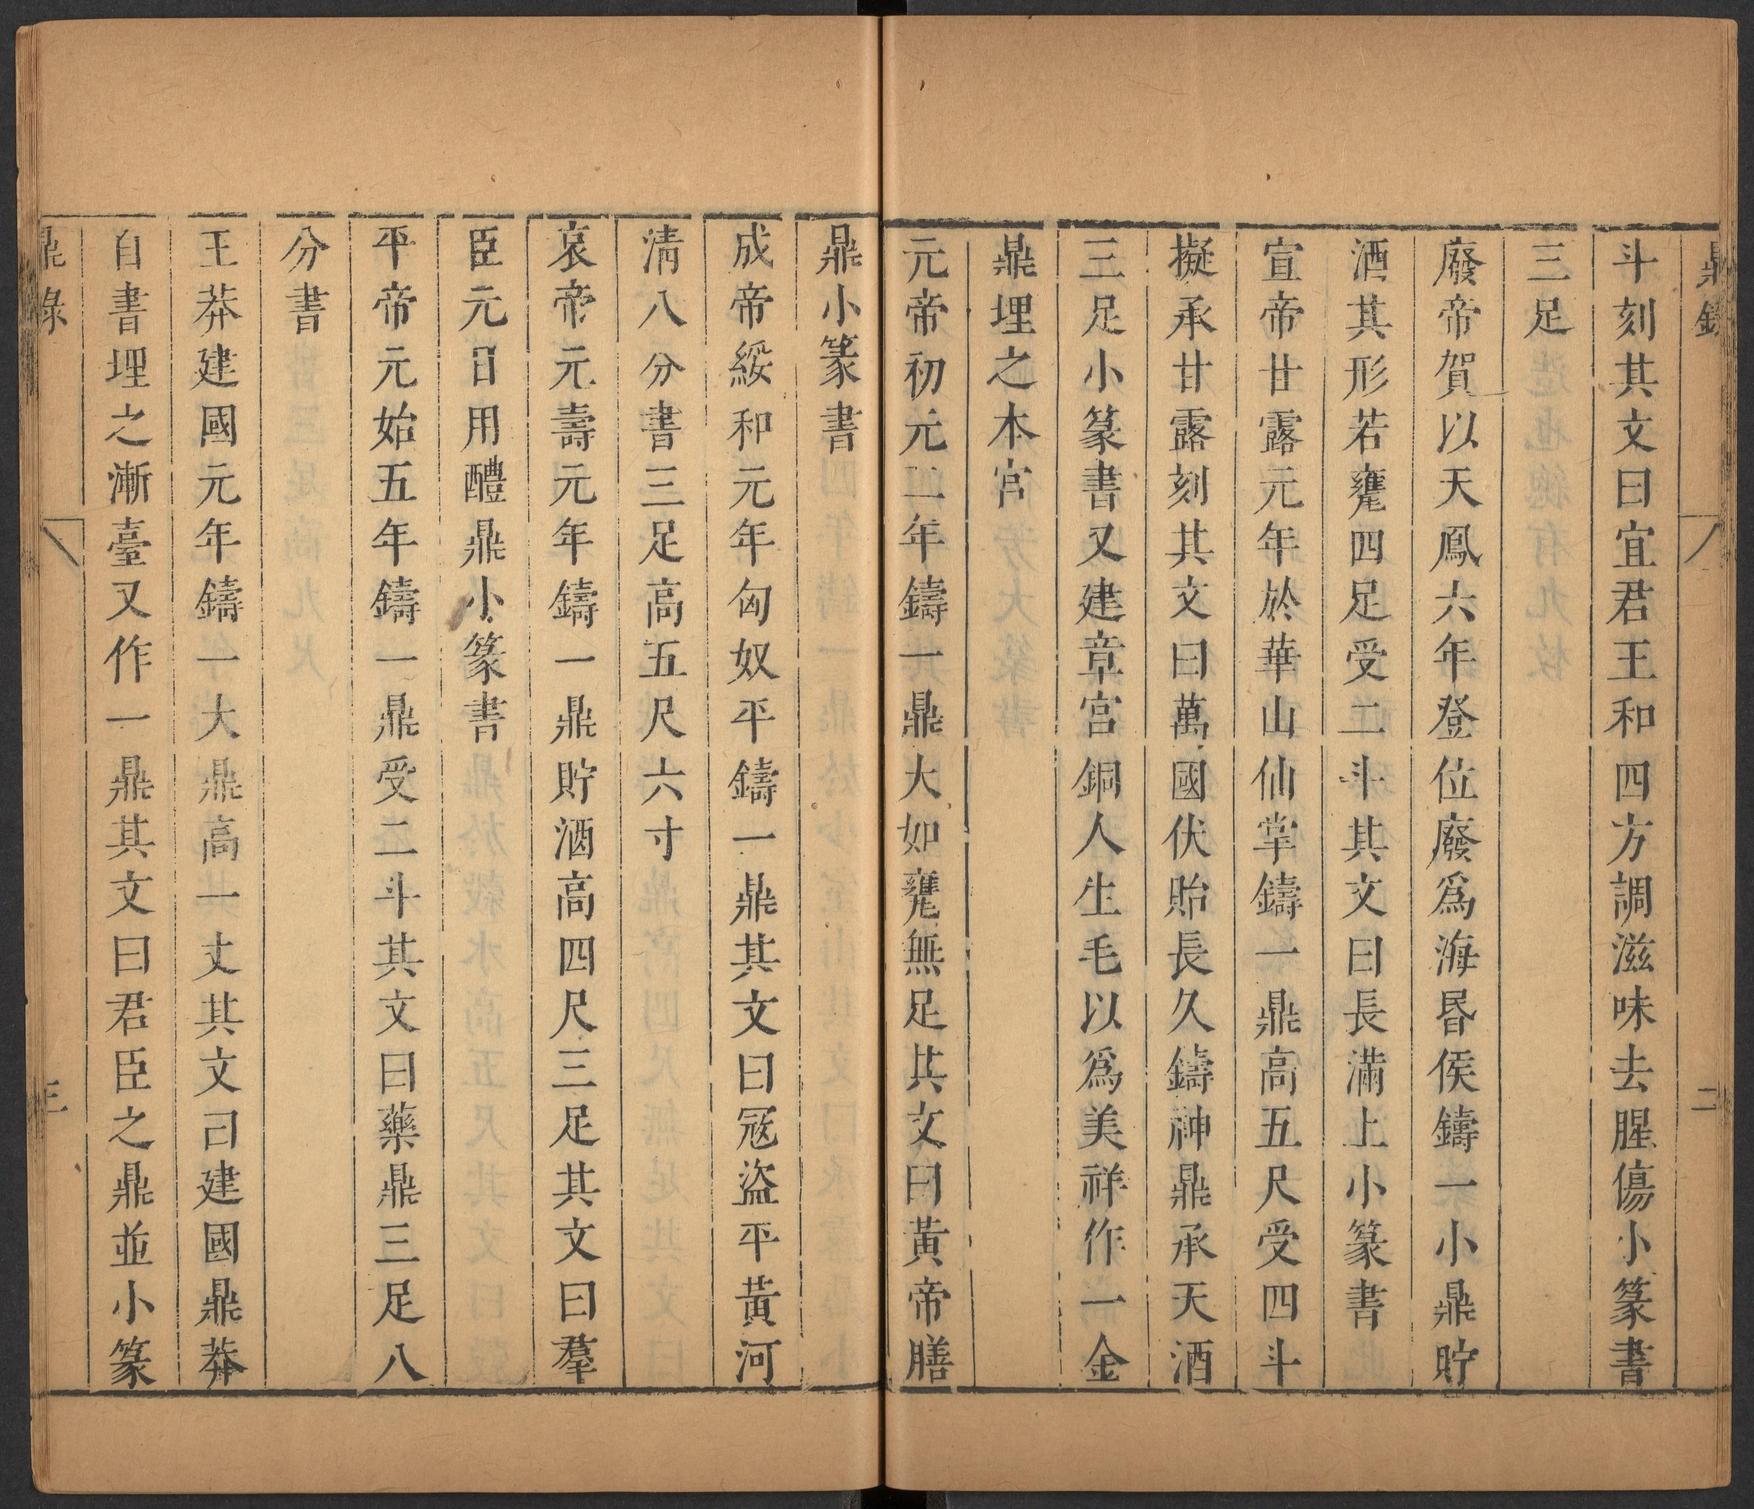 鼎錄
二
斗刻其文曰宜君王和四方調滋味去腥傷小篆書
三足
廢帝賀以天鳳六年登位廢爲海昏侯鑄一小鼎貯
酒其形若甕四足受二斗其文曰長滿上小篆書
宣帝甘露元年於華山仙掌鑄一鼎高五尺受四斗
擬承甘露刻其文曰萬國伏貽長久鑄神鼎承天酒
三足小篆書又建章宮銅人生毛以爲美祥作一金
鼎埋之本宮
元帝初元二年鑄一鼎大如甕無足其文曰黃帝膳
鼎小篆書
成帝綏和元年匈奴平鑄一鼎其文曰寇盜平黃河
清八分書三足高五尺六寸
哀帝元壽元年鑄一鼎貯酒高四尺三足其文曰羣
臣元日用醴鼎小篆書
平帝元始五年鑄一鼎受二斗其文曰藥鼎三足八
分書
王莽建國元年鑄一大鼎高一丈其文曰建國鼎莽
自書埋之漸臺又作一鼎其文曰君臣之鼎並小篆
鼎錄
三